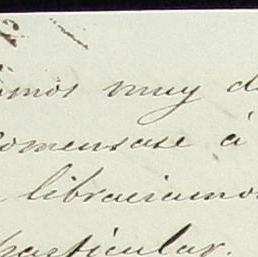 imos muy d
comensase á
libraciamos
particular.